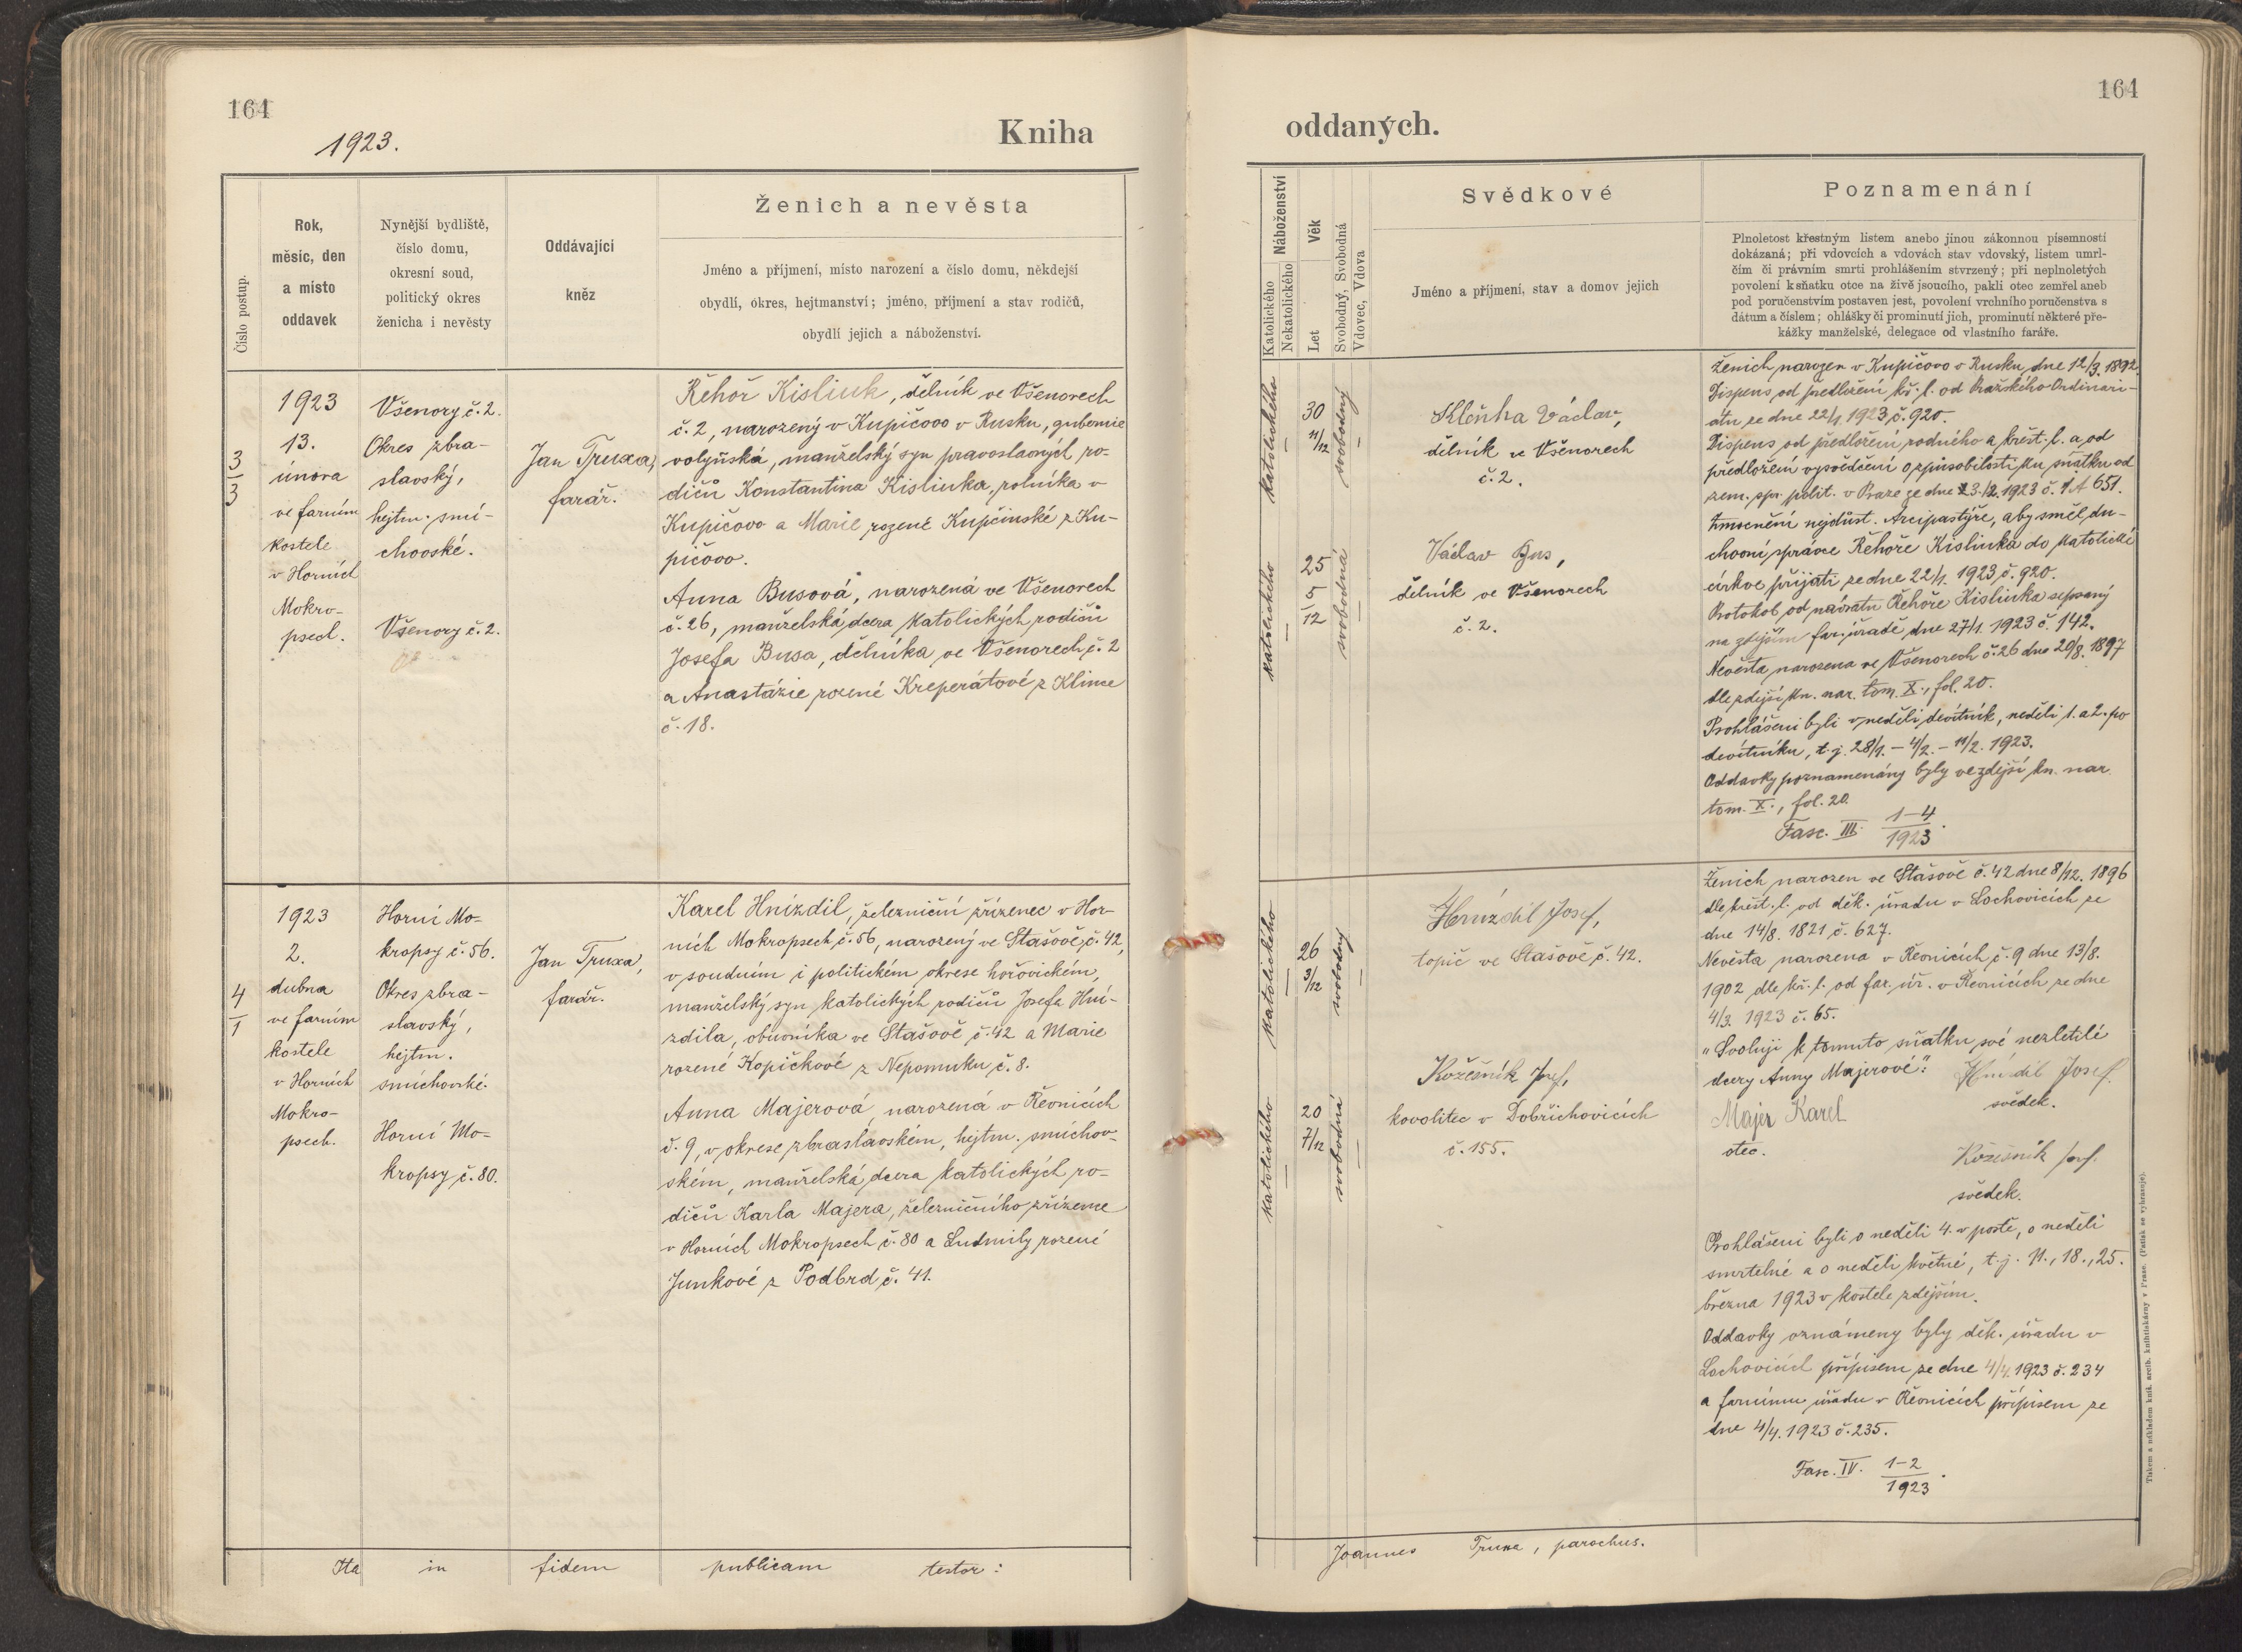 164
1923.
Kniha
Číslo postup.
Rok,
měsíc, den
a místo
oddavek
Nynější bydliště,
číslo domu,
okresní soud,
politický okres
ženicha i nevěsty
Oddávající
kněz
Ženich a nevěsta
Jméno a příjmení, místo narození a číslo domu, někdejší
obydlí, okres, hejtmanství; jméno, příjmení a stav rodičů,
obydlí jejich a náboženství.
3
3
1923
13.
února
ve farním
kostele
v Horních
Mokro-
psech.
Všenory č. 2.
Okres zbra-
slavský,
hejtm. smí-
chovské.
Všenory č. 2.
Jan Truxa,
farář.
Řehoř Kisliuk, dělník ve Všenorech
č. 2, narozený v Kupičovo v Rusku, gubernie
volyňská, manželský syn pravoslavných ro-
dičů Konstantina Kisliuka, rolníka v
Kupičovo a Marie rozené Kupčinské z Ku-
pičovo.
Anna Busová, narozená ve Všenorech
č. 26, manželská dcera katolických rodičů
Josefa Busa, dělníka ve Všenorech č. 2
a Anastázie rozené Kreperátové z Klince
č. 18.
4
1
1923
2.
dubna
ve farním
kostele
v Horních
Mokro-
psech.
Horní Mo-
kropsy č. 56.
Okres zbra-
slavský,
hejtm.
smíchovské.
Horní Mo-
kropsy č. 80.
Jan Truxa,
farář.
Karel Hnízdil, železniční zřízenec v Hor-
ních Mokropsech č. 56, narozený ve Stašově č. 42,
v soudním i politickém okrese hořovickém,
manželský syn katolických rodičů Josefa Hní-
zdila, obuvníka ve Stašově č. 42 a Marie
rozené Kopičkové z Nepomuku č. 8.
Anna Majerová, narozená v Řevnicích
č. 9, v okrese zbraslavském, hejtm. smíchov-
ském, manželská dcera katolických ro-
dičů Karla Majera, železničního zřízence
v Horních Mokropsech č. 80 a Ludmily rozené
Junkové z Podbrd č. 41.
Ita in fidem publicam testor:
164
oddaných.
Náboženství
Katolického
Nekatolického
Věk
Let
Svobodný, Svobodná
Vdovec, Vdova
Svědkové
Jméno a příjmení, stav a domov jejich
Poznamenání
Plnoletost křestným listem anebo jinou zákonnou písemností
dokázaná; při vdovcích a vdovách stav vdovský, listem úmrt-
čím či právním smrti prohlášením stvrzený; při neplnoletých
povolení k sňatku otce na živě jsoucího, pakli otec zemřel aneb
pod poručenstvím postaven jest, povolení vrchního poručenstva s
dátum a číslem; ohlášky či prominutí jich, prominutí některé pře-
kážky manželské, delegace od vlastního faráře.
katolického
—
30
11/12
svobodný
—
Kleňha Václav,
dělník ve Všenorech
č. 2.
katolického
—
25
5
12
svobodná
—
Václav Bus,
dělník ve Všenorech
č. 2.
Ženich narozen v Kupičovo v Rusku dne 12/3. 1892
Dispens od předložení kř. l. od Pražského Ordinari-
átu ze dne 22/1. 1923 č. 920.
Dispens od předložení rodného a křest. l. a od
předložení vysvědčení o způsobilosti ku sňatku od
zem. spr. polit. v Praze ze dne 3./2. 1923 č. 1A 651.
Zmocnění nejdůst. Arcipastýře, aby směl du-
chovní správce Řehoře Kisliuka do katolické
církve přijati ze dne 22/1. 1923 č. 920.
Protokol od návratu Řehoře Kisliuka sepsaný
na zdejším far. úřadě dne 27/1. 1923 č. 142.
Nevěsta narozena ve Všenorech č. 26 dne 20/8. 1897
dle zdejší kn. nar. tom. X., fol. 20.
Prohlášeni byli v neděli devítník, neděli 1. a 2. po
devítníku, t. j. 28/1. – 4/2. – 11/2. 1923.
Oddavky poznamenány byly ve zdejší kn. nar.
tom. X., fol. 20.
Fasc. III. 1–4
1923.
katolického
—
26
3/12
svobodný
—
Hnízdil Josef,
topič ve Stašově č. 42.
katolického
—
20
7/12
svobodná
—
Kožešník Josef,
kovolitec v Dobřichovicích
č. 155.
Ženich narozen ve Stašově č. 42 dne 8/12. 1896
dle křest. l. od děk. úřadu v Lochovicích ze
dne 14/8. 1821 č. 627.
Nevěsta narozena v Řevnicích č. 9 dne 13/8.
1902 dle kř. l. od far. úř. v Řevnicích ze dne
4/3. 1923 č. 65.
„Svoluji k tomuto sňatku své nezletilé
dcery Anny Majerové".
Hnízdil Josef
svědek.
Majer Karel
otec.
Kožešník Josef.
svědek.
Prohlášeni byli o neděli 4. v postě, o neděli
smrtelné a o neděli květné, t. j. 11., 18., 25.
března 1923 v kostele zdejším.
Oddavky oznámeny byly děk. úřadu v
Lochovicích přípisem ze dne 4/4. 1923 č. 234
a farnímu úřadu v Řevnicích přípisem ze
dne 4/4. 1923 č. 235.
Fasc. IV. 1–2
1923.
Joannes Truxa, parochus.